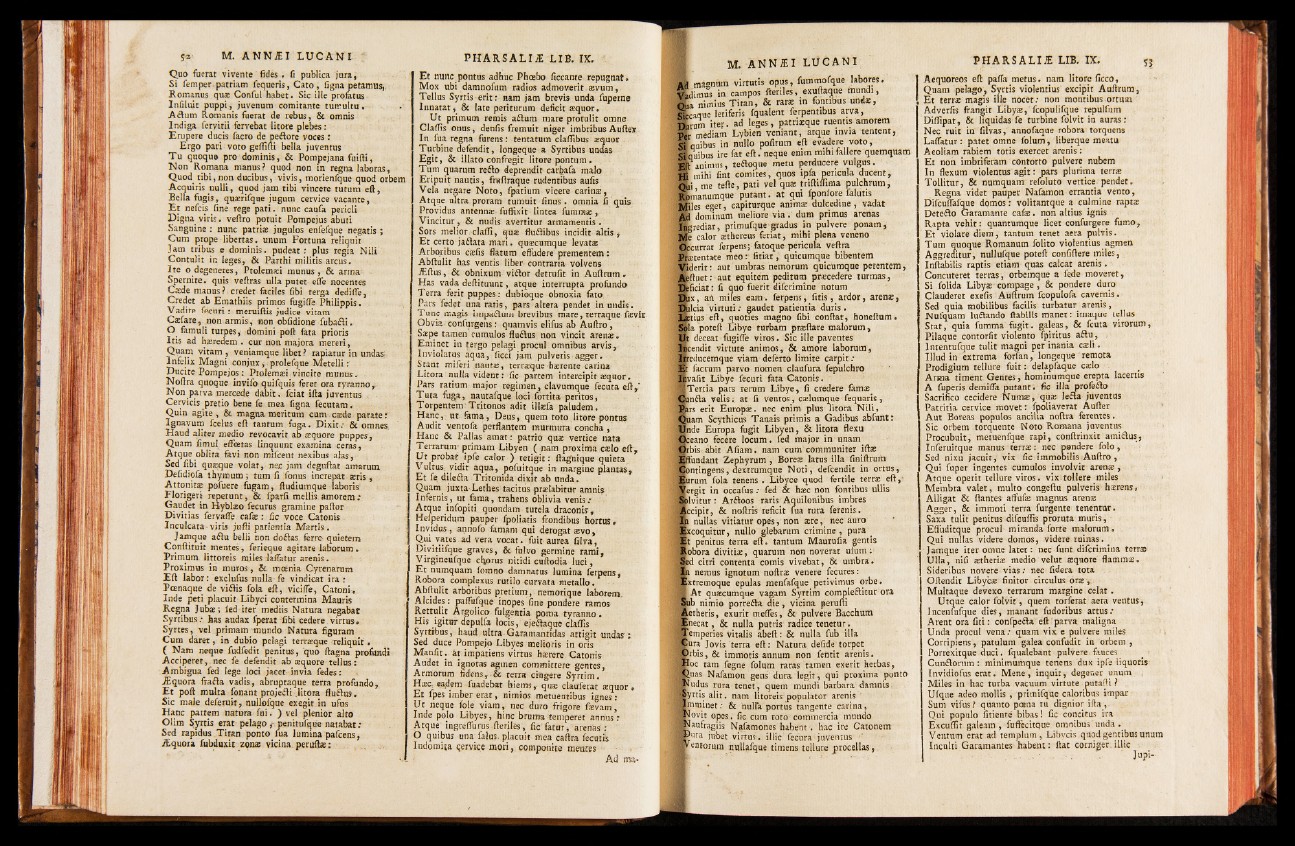 52 M. ANNÆI LUCANI
Quo fuerat vivente fides. si publica jura,
Si semper patriam sequeris, Cato, signa petamus,
Romanus quæ Consul habet. Sic ille profatus
Insiluit puppi, juvenum comitante tumultu.
Actum Romanis fuerat de rebus, & omnis
Indiga servitii fervebat litore plebes:
Erupere ducis sacro de pectore voces:
Ergo pari voto gessisti bella juventus
Tu quoque pro dominis, & Pompejana fuisti,
Non Romana manus? quod non in regna laboras,
Quod tibi, non ducibus, vivis, moriensque quod orbem
Acquiris nulli, quod jam tibi vincere tutum est,
Bella fugis, quærisque jugum cervice vacante,
Et nescis sine rege pati. nunc causa pericli
Digna viris. vestro potuit Pompejus abuti
Sanguine: nunc patriæ jugulos ensesque negatis;
Cum prope libertas. unum Fortuna reliquit
Jam tribus e dominis. pudeat: plus regia Nili
Contulit in leges, & Parthi militis arcus.
Ite o degeneres, Ptolemæi munus, & arma
Spernite. quis vestras ulla putet esse nocentes
Cæde manus? credet faciles sibi terga dedisse,
Credet ab Emathiis primos fugisse Philippis.
Vadite securi: meruistis judice vitam
Cæsare, non armis, non obsidione subacti.
O famuli turpes, domini post fata prioris
Itis ad hæredem. cur non majora mereri,
Quam vitam, veniamque libet? rapiatur in undas
Infelix Magni conjux, prolesque Metelli:
Ducite Pompejos: Ptolemæi vincite munus.
Nostra quoque inviso quisquis feret ora tyranno,
Non parva mercede dabit. sciat ista juventus
Cervicis pretio bene se mea signa secutam.
Quin agite, & magna meritum cum cæde parate:
Ignavum scelus est tantum fuga. Dixit: & omnes
Haud aliter medio revocavit ab æquore puppes,
Quam simul effœtas linquunt examina ceras,
Atque oblita favi non miscent nexibus alas,
Sed sibi quæque volat, nec jam degustat amarum
Desidiosa thymum; tum si sonus increpat æris,
Attonitæ posuere fugam, studiumque laboris
Florigeri repetunt, & sparsi mellis amorem:
Gaudet in Hyblæo securus gramine pastor
Divitias servasse casæ: sic voce Catonis
Inculcata viris justi patientia Martis.
Jamque actu belli non doctas ferre quietem
Constituit mentes, serieque agitare laborum.
Primum littoreis miles lassatur arenis.
Proximus in muros, & mœnia Cyrenarum
Est labor: exclusus nulla se vindicat ira:
Pœnaque de victis sola est, vicisse, Catoni.
Inde peti placuit Libyci contermina Mauris
Regna Jubæ; sed iter mediis Natura negabat
Syrtibus: has audax sperat sibi cedere virtus.
Syrtes, vel primam mundo Natura figuram
Cum daret, in dubio pelagi terræque reliquit.
( Nam neque subsedit penitus, quo stagna profundi
Acciperet, nec se defendit ab æquore tellus:
Ambigua sed lege loci jacet invia sedes:
Æquora fracta vadis, abruptaque terra profundo,
Et post multa sonant projecti litora fluctus.
Sic male deseruit, nullosque exegit in usus
Hanc partem natura sui. ) vel plenior alto
Olim Syrtis erat pelago, penitusque natabat:
Sed rapidus Titan ponto sua lumina pascens,
Æquora subduxit zonæ vicina perustæ:
PHARSALIÆ LIB. IX.
Et nunc pontus adhuc Phœbo siccante repugnat.
Mox ubi damnosum radios admoverit ævum,
Tellus Syrtis erit: nam jam brevis unda superne
Innatat, & late periturum deficit æquor.
Ut primum remis actum mare protulit omne
Classis onus, densis fremuit niger imbribus Auster
In sua regna furens: tentatum classibus æquor
Turbine defendit, longeque a Syrtibus undas
Egit, & illato confregit litore pontum.
Tum quarum recto deprendit carbasa malo
Eripuit nautis, frustraque rudentibus ausis
Vela negare Noto, spatium vicere carinæ,
Atque ultra proram tumuit sinus. omnia si quis
Providus antennæ suffixit lintea summæ,
Vincitur, & nudis avertitur armamentis.
Sors melior classi, quæ fluctibus incidit altis,
Et certo jactata mari. quæcumque levatæ
Arboribus cæsis flatum effudere prementem:
Abstulit has ventis liber contraria volvens
Æstus, & obnixum victor detrusit in Austrum.
Has vada destituunt, atque interrupta profundo
Terra ferit puppes: dubioque obnoxia fato
Pars sedet una ratis, pars altera pendet in undis.
Tunc magis impactum brevibus mare, terraque sævit
Obvia consurgens: quamvis elisus ab Austro,
Sæpe tamen cumulos fluctus non vincit arenæ.
Eminet in tergo pelagi procul omnibus arvis,
Inviolatus aqua, sicci jam pulveris agger.
Stant miseri nautæ, terræque hærente carina
Litora nulla vident: sic partem intercipit æquor.
Pars ratium major regimen, clavumque secuta est,
Tuta fuga, nautasque loci sortita peritos,
Torpentem Tritonos adit illæsa paludem.
Hanc, ut fama, Deus, quem toto litore pontus
Audit ventosa perflantem murmura concha,
Hanc & Pallas amat: patrio quæ vertice nata
Terrarum primam Libyen ( nam proxima cælo est,
Ut probat ipse calor ) tetigit: stagnique quieta
Vultus vidit aqua, posuitque in margine plantas,
Et se dilecta Tritonida dixit ab unda.
Quam juxta Lethes tacitus prælabitur amnis
Infernis, ut fama, trahens oblivia venis:
Atque insopiti quondam tutela draconis,
Hesperidum pauper spoliatis frondibus hortus,
Invidus, annoso famam qui derogat ævo,
Qui vates ad vera vocat. fuit aurea silva,
Divitiisque graves, & fulvo germine rami,
Virgineusque chorus nitidi custodia luci,
Et numquam somno damnatus lumina serpens,
Robora complexus rutilo curvata metallo.
Abstulit arboribus pretium, nemorique laborem
Alcides: passusque inopes sine pondere ramos
Rettulit Argolico fulgentia poma tyranno.
His igitur depulsa locis, ejectaque classis
Syrtibus, haud ultra Garamantidas attigit undas:
Sed duce Pompejo Libyes melioris in oris
Mansit. at impatiens virtus hærere Catonis
Audet in ignotas agmen committere gentes,
Armorum fidens, & terra cingere Syrtim.
Hæc eadem suadebat hiems, quæ clauserat æquor,
Et spes imber erat, nimios metuentibus ignes:
Ut neque sole viam, nec duro frigore sævam,
Inde polo Libyes, hinc bruma temperet annus:
Atque ingressurus steriles, sic fatur, arenas:
O quibus una salus placuit mea castra secutis
Indomita cervice mori, componite mentes
Ad ma-
M. ANNÆI LUCANI
Ad magnum virtutis opus, summosque labores.
Vadimus in campos steriles, exustaque mundi,
Qua nimius Titan, & raræ in fontibus undæ,
Siccaque letiferis squalent serpentibus arva,
Durum iter. ad leges, patriæque ruentis amorem
Per mediam Lybien veniant, atque invia tentent,
Si quibus in nullo positum est evadere voto,
Si quibus ire sat est. neque enim mihi fallere quemquam
Est animus, tectoque metu perducere vulgus.
Hi mihi sint comites, quos ipsa pericula ducent,
Qui, me teste, pati vel quæ tristissima pulchrum,
Romanumque putant. at qui sponsore salutis
Miles eget, capiturque animæ dulcedine, vadat
Ad dominum meliore via. dum primus arenas
Ingrediar, primusque gradus in pulvere ponam,
Me calor æthereus feriat, mihi plena veneno
Occurrat serpens; fatoque pericula vestra
Prætentate meo: sitiat, quicumque bibentem
Viderit: aut umbras nemorum quicumque petentem,
Aestuet: aut equitem peditum præcedere turmas,
Deficiat: si quo fuerit discrimine notum
Dux, an miles eam. serpens, sitis, ardor, arenæ,
Dulcia virtuti: gaudet patientia duris.
Lætius est, quoties magno sibi constat, honestum.
Sola potest Libye turbam præstare malorum,
Ut deceat fugisse viros. Sic ille paventes
Incendit virtute animos, & amore laborum,
Irreducemque viam deserto limite carpit:
Et sacrum parvo nomen clausura sepulchro
Invasit Libye securi fata Catonis.
Tertia pars rerum Libye, si credere famæ
Cuncta velis. at si ventos, cælumque sequaris,
Pars erit Europæ. nec enim plus litora Nili,
Quam Scythicus Tanais primis a Gadibus absunt:
Unde Europa fugit Libyen, & litora flexu
Oceano fecere locum. sed major in unam
Orbis abit Asiam. nam cum communiter istæ
Effundant Zephyrum, Boreæ latus illa sinistrum
Contingens, dextrumque Noti, descendit in ortus,
Eurum sola tenens. Libycæ quod fertile terræ est,
Vergit in occasus: sed & hæc non fontibus ullis
Solvitur: Arctoos raris Aquilonibus imbres
Accipit, & nostris reficit sua rura serenis.
In nullas vitiatur opes, non ære, nec auro
Excoquitur, nullo glebarum crimine, pura
Et penitus terra est. tantum Maurusia gentis
Robora divitiæ, quarum non noverat usum:
Sed citri contenta comis vivebat, & umbra.
In nemus ignotum nostræ venere secures:
Extremoque epulas mensasque petivimus orbe.
At quæcumque vagam Syrtim complectitur ora
Sub nimio porrecta die, vicina perusti
Aetheris, exurit messes, & pulvere Bacchum
Enecat, & nulla putris radice tenetur.
Temperies vitalis abest: & nulla sub illa
Cura Jovis terra est: Natura deside torpet
Orbis, & immotis annum non sentit arenis.
Hoc tam segne solum raras tamen exerit herbas,
Quas Nafamon gens dura legit, qui proxima ponto
Nudus rura tenet, quem mundi barbara damnis
Syrtis alit. nam litoreis populator arenis
Imminet: & nulla portus tangente carina,
Novit opes. sic cum toto commercia mundo
Naufragiis Nasamones habent. hac ire Catonem
Dura jubet virtus. illic secura juventus
Ventorum nullasque timens tellure procellas,
PHARSALIÆ LIB. IX. 53
Aequoreos est passa metus. nam litore sicco,
Quam pelago, Syrtis violentius excipit Austrum,
Et terræ magis ille nocet: non montibus ortum
Adversis frangit Libye, scopulisque repulsum
Dissipat, & liquidas se turbine solvit in auras:
Nec ruit in silvas, annosaque robora torquens
Lassatur: patet omne solum, liberque meatu
Aeoliam rabiem totis exercet arenis:
Et non imbriferam contorto pulvere nubem
In flexum violentus agit: pars plurima terræ
Tollitur, & numquam resoluto vertice pendet.
Regna videt pauper Nasamon errantia vento,
Discussasque domos: volitantque a culmine raptæ
Detecto Garamante casæ. non altius ignis
Rapta vehit: quantumque licet consurgere fumo,
Et violare diem, tantum tenet aera pulvis.
Tum quoque Romanum solito violentius agmen
Aggreditur, nullusque potest consistere miles,
Instabilis raptis etiam quas calcat arenis.
Concuteret terras, orbemque a sede moveret,
Si solida Libye compage, & pondere duro
Clauderet exesis Austrum scopulosa cavernis.
Sed quia mobilibus facilis turbatur arenis,
Nusquam luctando stabilis manet: imæque tellus
Stat, quia summa fugit. galeas, & scuta virorum,
Pilaque contorsit violento spiritus actu,
Intentusque tulit magni per inania cæli.
Illud in extrema forsan, longeque remota
Prodigium tellure fuit: delapsaque cælo
Arma timent Gentes, hominumque erepta lacertis
A superis demissa putant. sic illa profecto
Sacrifico cecidere Numæ, quæ lecta juventus
Patritia cervice movet: spoliaverat Auster
Aut Boreas populos ancilia nostra ferentes.
Sic orbem torquente Noto Romana juventus
Procubuit, metuensque rapi, constrinxit amictus,
Inseruitque manus terræ: nec pondere solo,
Sed nixu jacuit, vix sic immobilis Austro,
Qui super ingentes cumulos involvit arenæ,
Atque operit tellure viros. vix tollere miles
Membra valet, multo congestu pulveris hærens,
Alligat & stantes affusæ magnus arenæ
Agger, & immoti terra surgente tenentur.
Saxa tulit penitus discussis proruta muris,
Effuditque procul miranda sorte malorum.
Qui nullas videre domos, videre ruinas.
Jamque iter omne latet: nec sunt discrimina terræ
Ulla, nisi ætheriæ medio velut æquore flammæ.
Sideribus novere vias: nec sidera tota
Ostendit Libycæ finitor circulus oræ,
Multaque devexo terrarum margine celat.
Utque calor solvit, quem torserat aera ventus,
Incensusque dies, manant sudoribus artus:
Arent ora siti: conspecta est parva maligna
Unda procul vena: quam vix e pulvere miles
Corripiens, patulum galeæ confudit in orbem,
Porrexitque duci. squalebant pulvere fauces
Cunctorum: minimumque tenens dux ipse liquoris
Invidiosus erat. Mene, inquit, degener unum
Miles in hac turba vacuum virtute putasti?
Usque adeo mollis, primisque caloribus impar
Sum visus? quanto pœna tu dignior ista,
Qui populo sitiente bibas! sic concitus ira
Excussit galeam, suffecitque omnibus unda.
Ventum erat ad templum, Libycis quod gentibus unum
Inculti Garamantes habent: stat corniger illic
Jupi-